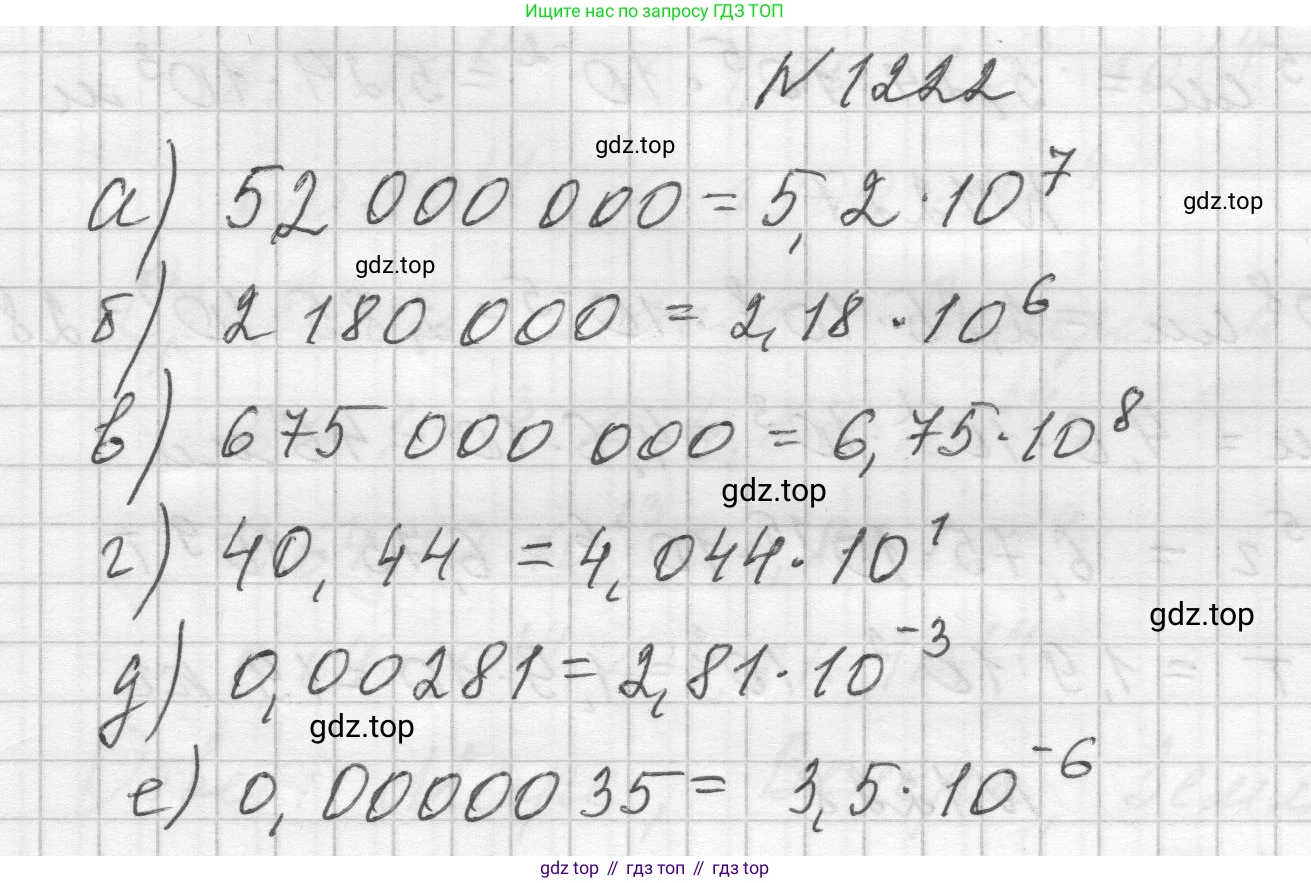 Ищите нас по запросу ГДЗ ТОП
N 1222
gdz.top
а) 52 000 000 = 5,2 · 10⁷
gdz.top
gdz.top
б) 2 180 000 = 2,18 · 10⁶
в) 675 000 000 = 6,75 · 10⁸
gdz.top
г) 40,44 = 4,044 · 10¹
gdz.top
д) 0,00281 = 2,81 · 10⁻³
gdz.top
е) 0,0000035 = 3,5 · 10⁻⁶
gdz top // гдз топ // гдз top